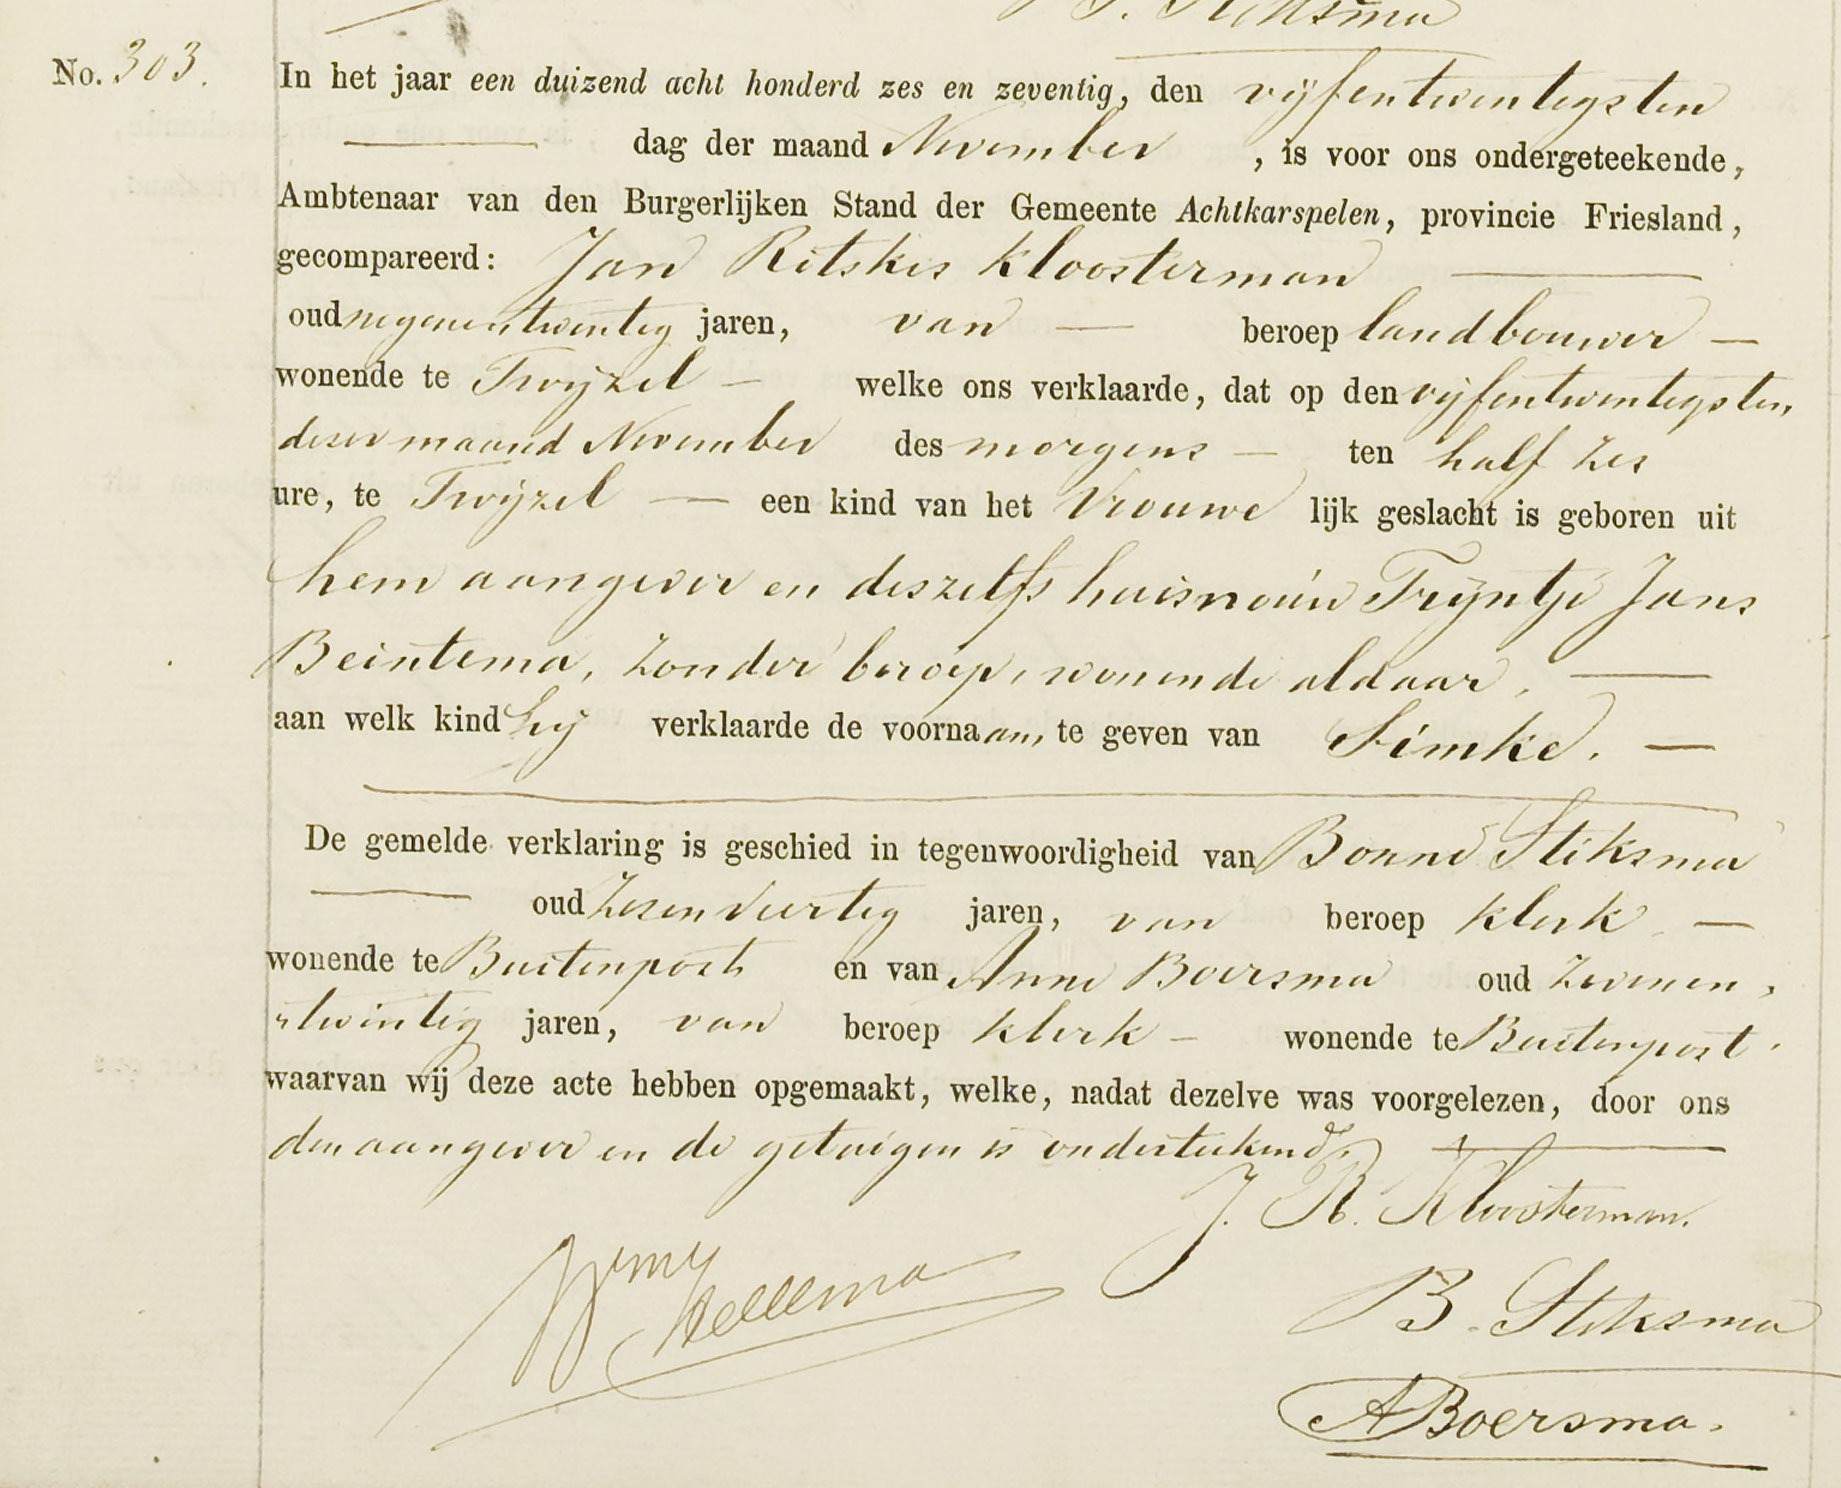 B. Stiksma
No. 303.
In het jaar een duizend acht honderd zes en zeventig, den vijfentwintigsten
dag der maand November, is voor ons ondergeteekende,
Ambtenaar van den Burgerlijken Stand der Gemeente Achtkarspelen, provincie Friesland,
gecompareerd: Jan Ritskes Kloosterman
oud negenentwintig jaren, van beroep landbouwer
wonende te Twijzel welke ons verklaarde, dat op den vijfentwintigsten
dezer maand November des morgens ten half zes
ure, te Twijzel een kind van het Vrouwelijk geslacht is geboren uit
hem aangever en deszelfs huisvrouw Trijntje Jans
Beintema, zonder beroep, wonende aldaar,
aan welk kind hij verklaarde de voornaam te geven van Simke.
De gemelde verklaring is geschied in tegenwoordigheid van Bonne Stiksma
oud zesenveertig jaren, van beroep klerk
wonende te Buitenpost en van Anne Boersma oud zevenen-
twintig jaren, van beroep klerk wonende te Buitenpost.
waarvan wij deze acte hebben opgemaakt, welke, nadat dezelve was voorgelezen, door ons
den aangever en de getuigen is onderteekend.
J. R. Kloosterman.
B. Stiksma
A Boersma.